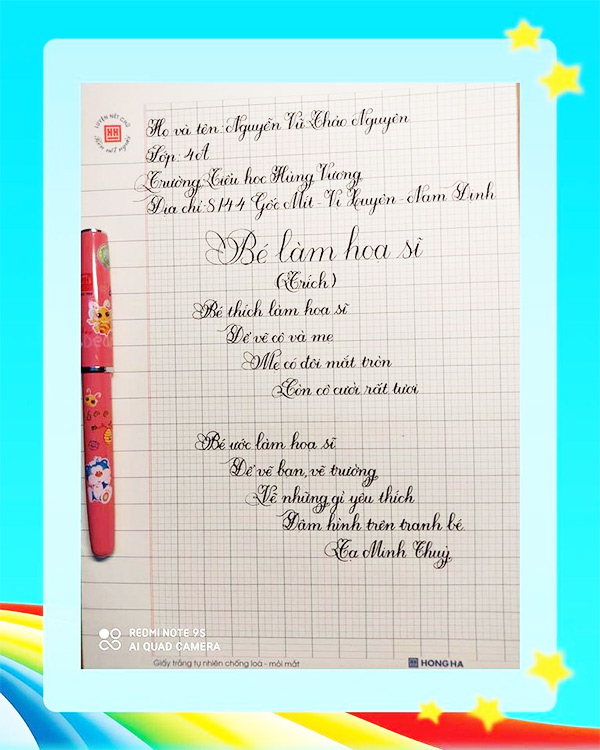 LUYỆN NÉT CHỮ
Rèn nết người
HH
Họ và tên: Nguyễn Vũ Thảo Nguyên
Lớp: 4A
Trường: Tiểu học Hùng Vương
Địa chỉ: S144 Gốc Mít - Vị Xuyên - Nam Định
Bé làm hoạ sĩ
(Trích)
Bé thích làm hoạ sĩ
Để vẽ cô và mẹ
Mẹ có đôi mắt tròn
Còn cô cười rất tươi
Bé ước làm hoạ sĩ
Để vẽ bạn, vẽ trường
Vẽ những gì yêu thích
Đậm hình trên tranh bé.
Tạ Minh Thuỷ
REDMI NOTE 9S
AI QUAD CAMERA
Giấy trắng tự nhiên chống loá - mỏi mắt
HONG HA